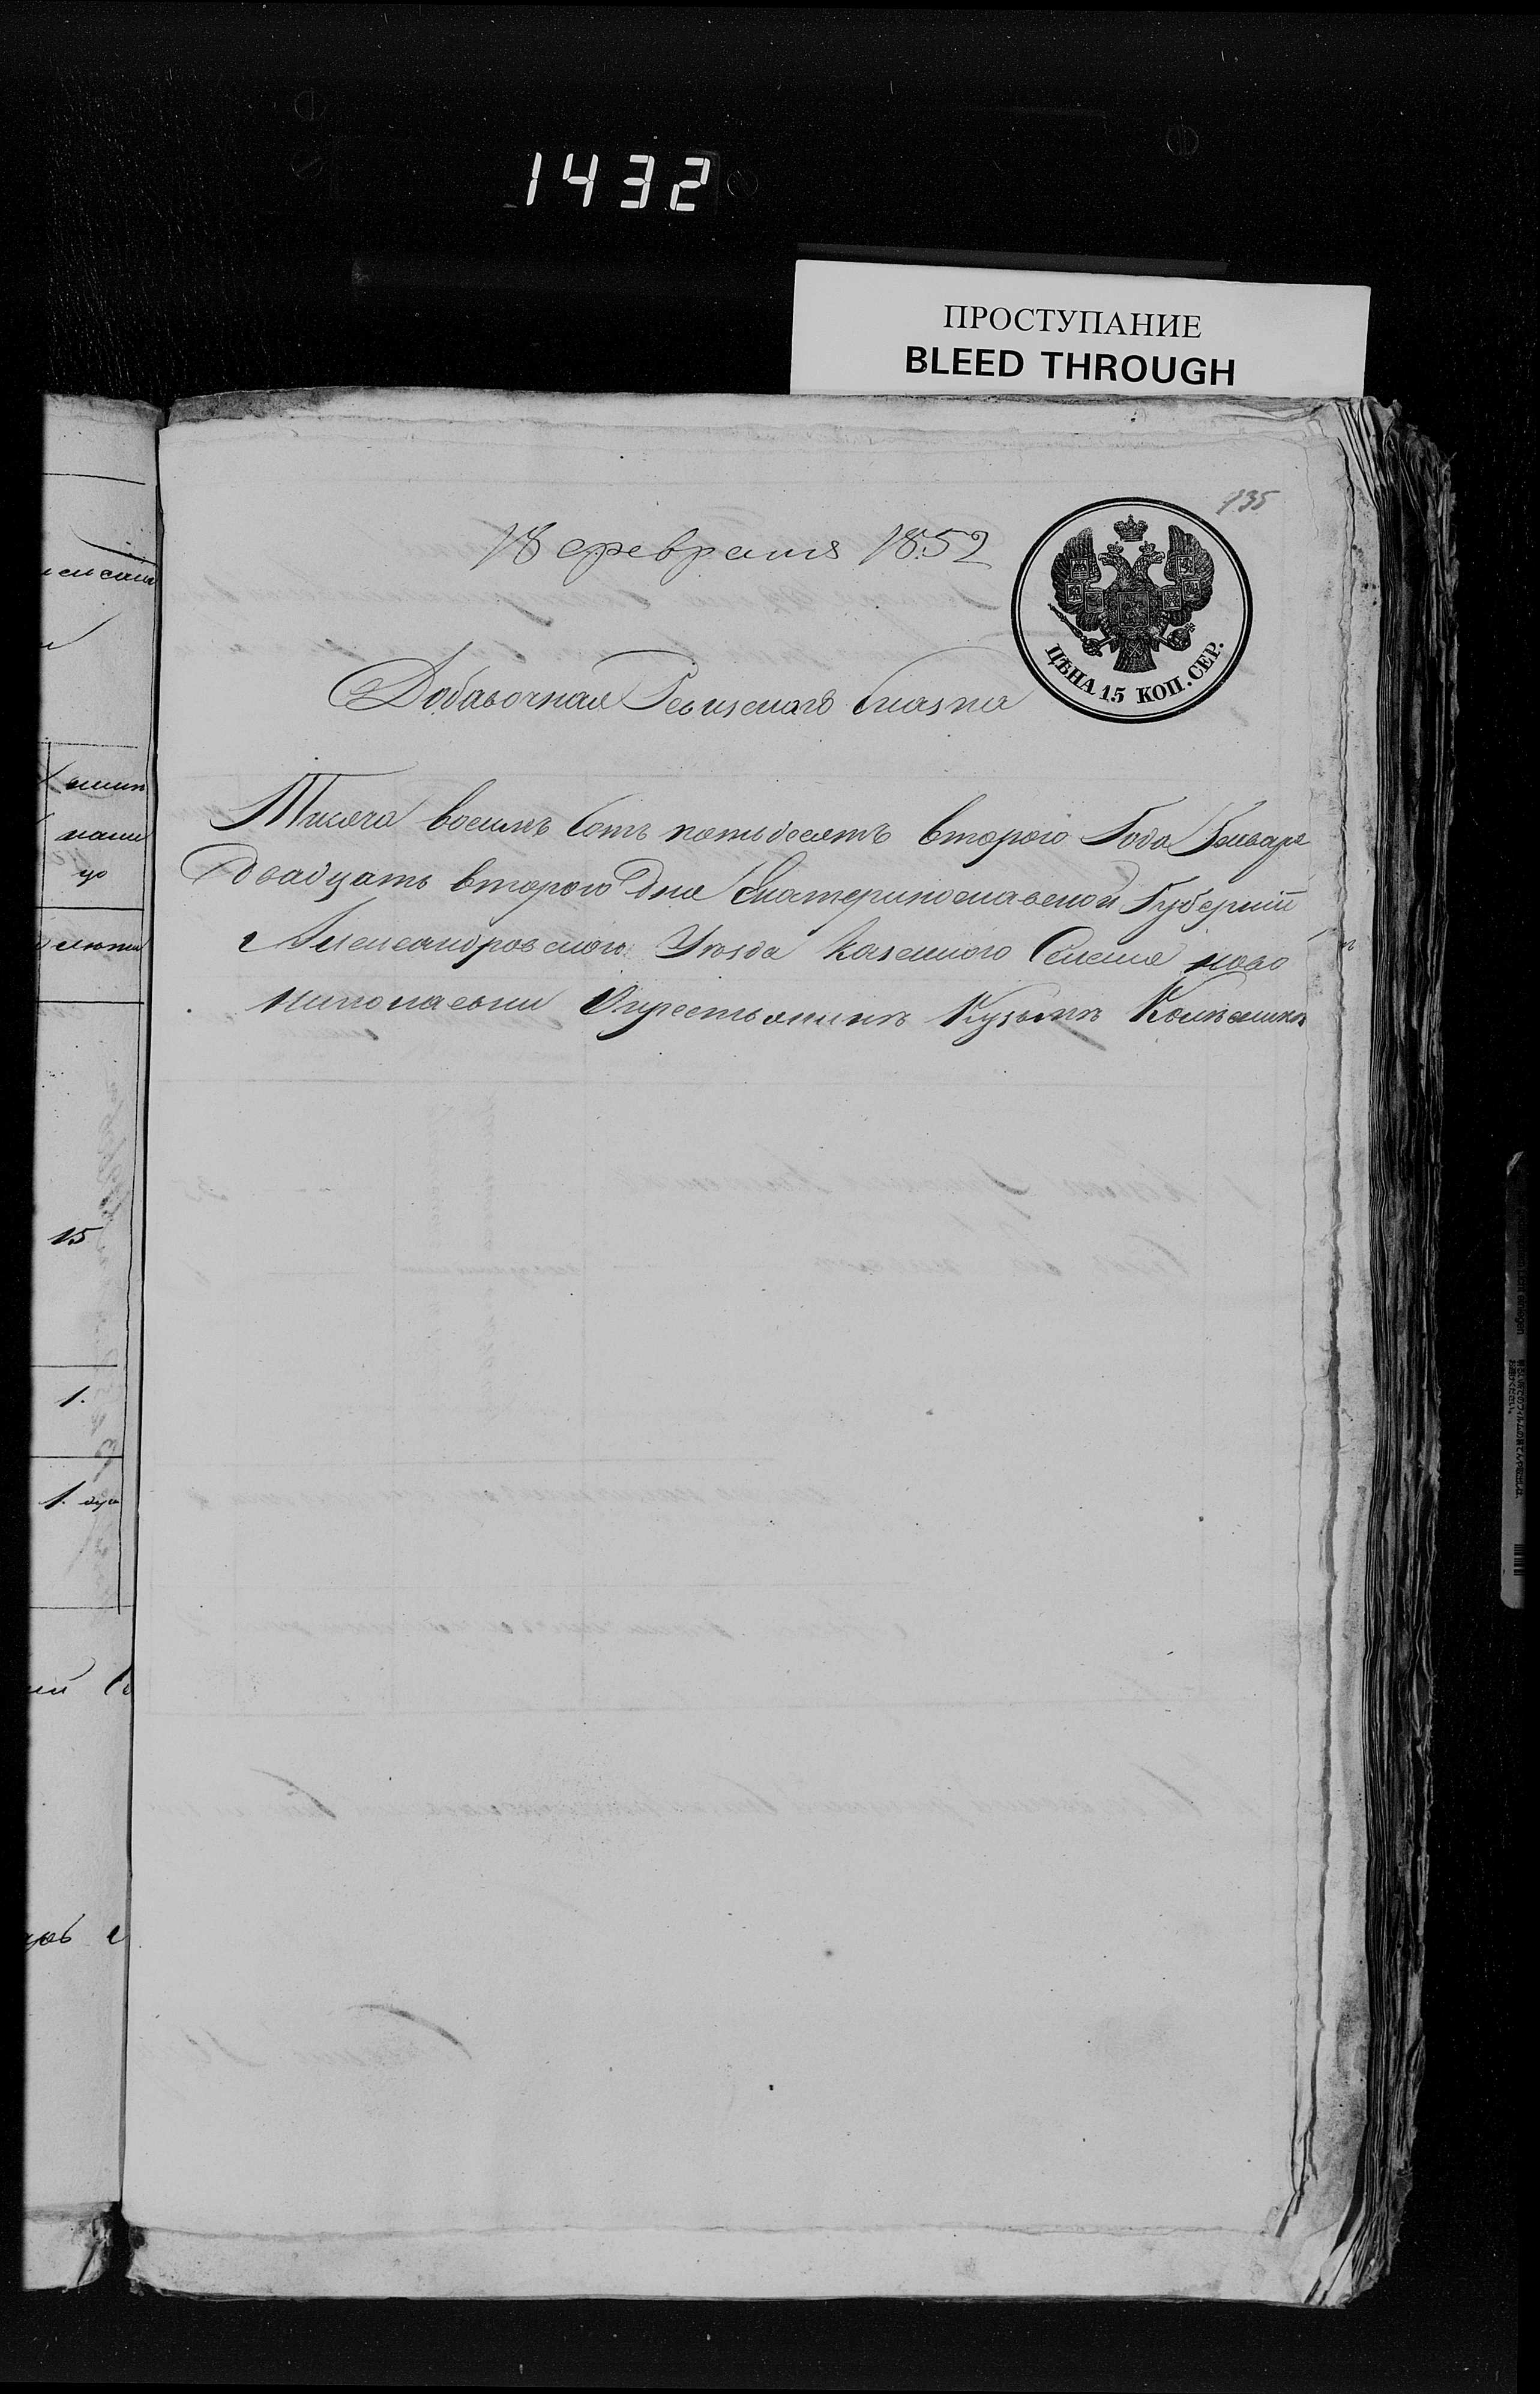 1432
ПРОСТУПАНИЕ
BLEED THROUGH
135
18 февраля 1852
ЦѢНА 15 КОП. СЕР.
Добавочная Ревизская Сказка
Тисяча восемь Сотъ пятьдесятъ второго Года Генваря
Двадцать второго Дня Екатеринославской Губерніи
Александровского Уезда Казенного Селения ново
николаевки Окрестьянинъ Кузьмъ
15
1.
1.